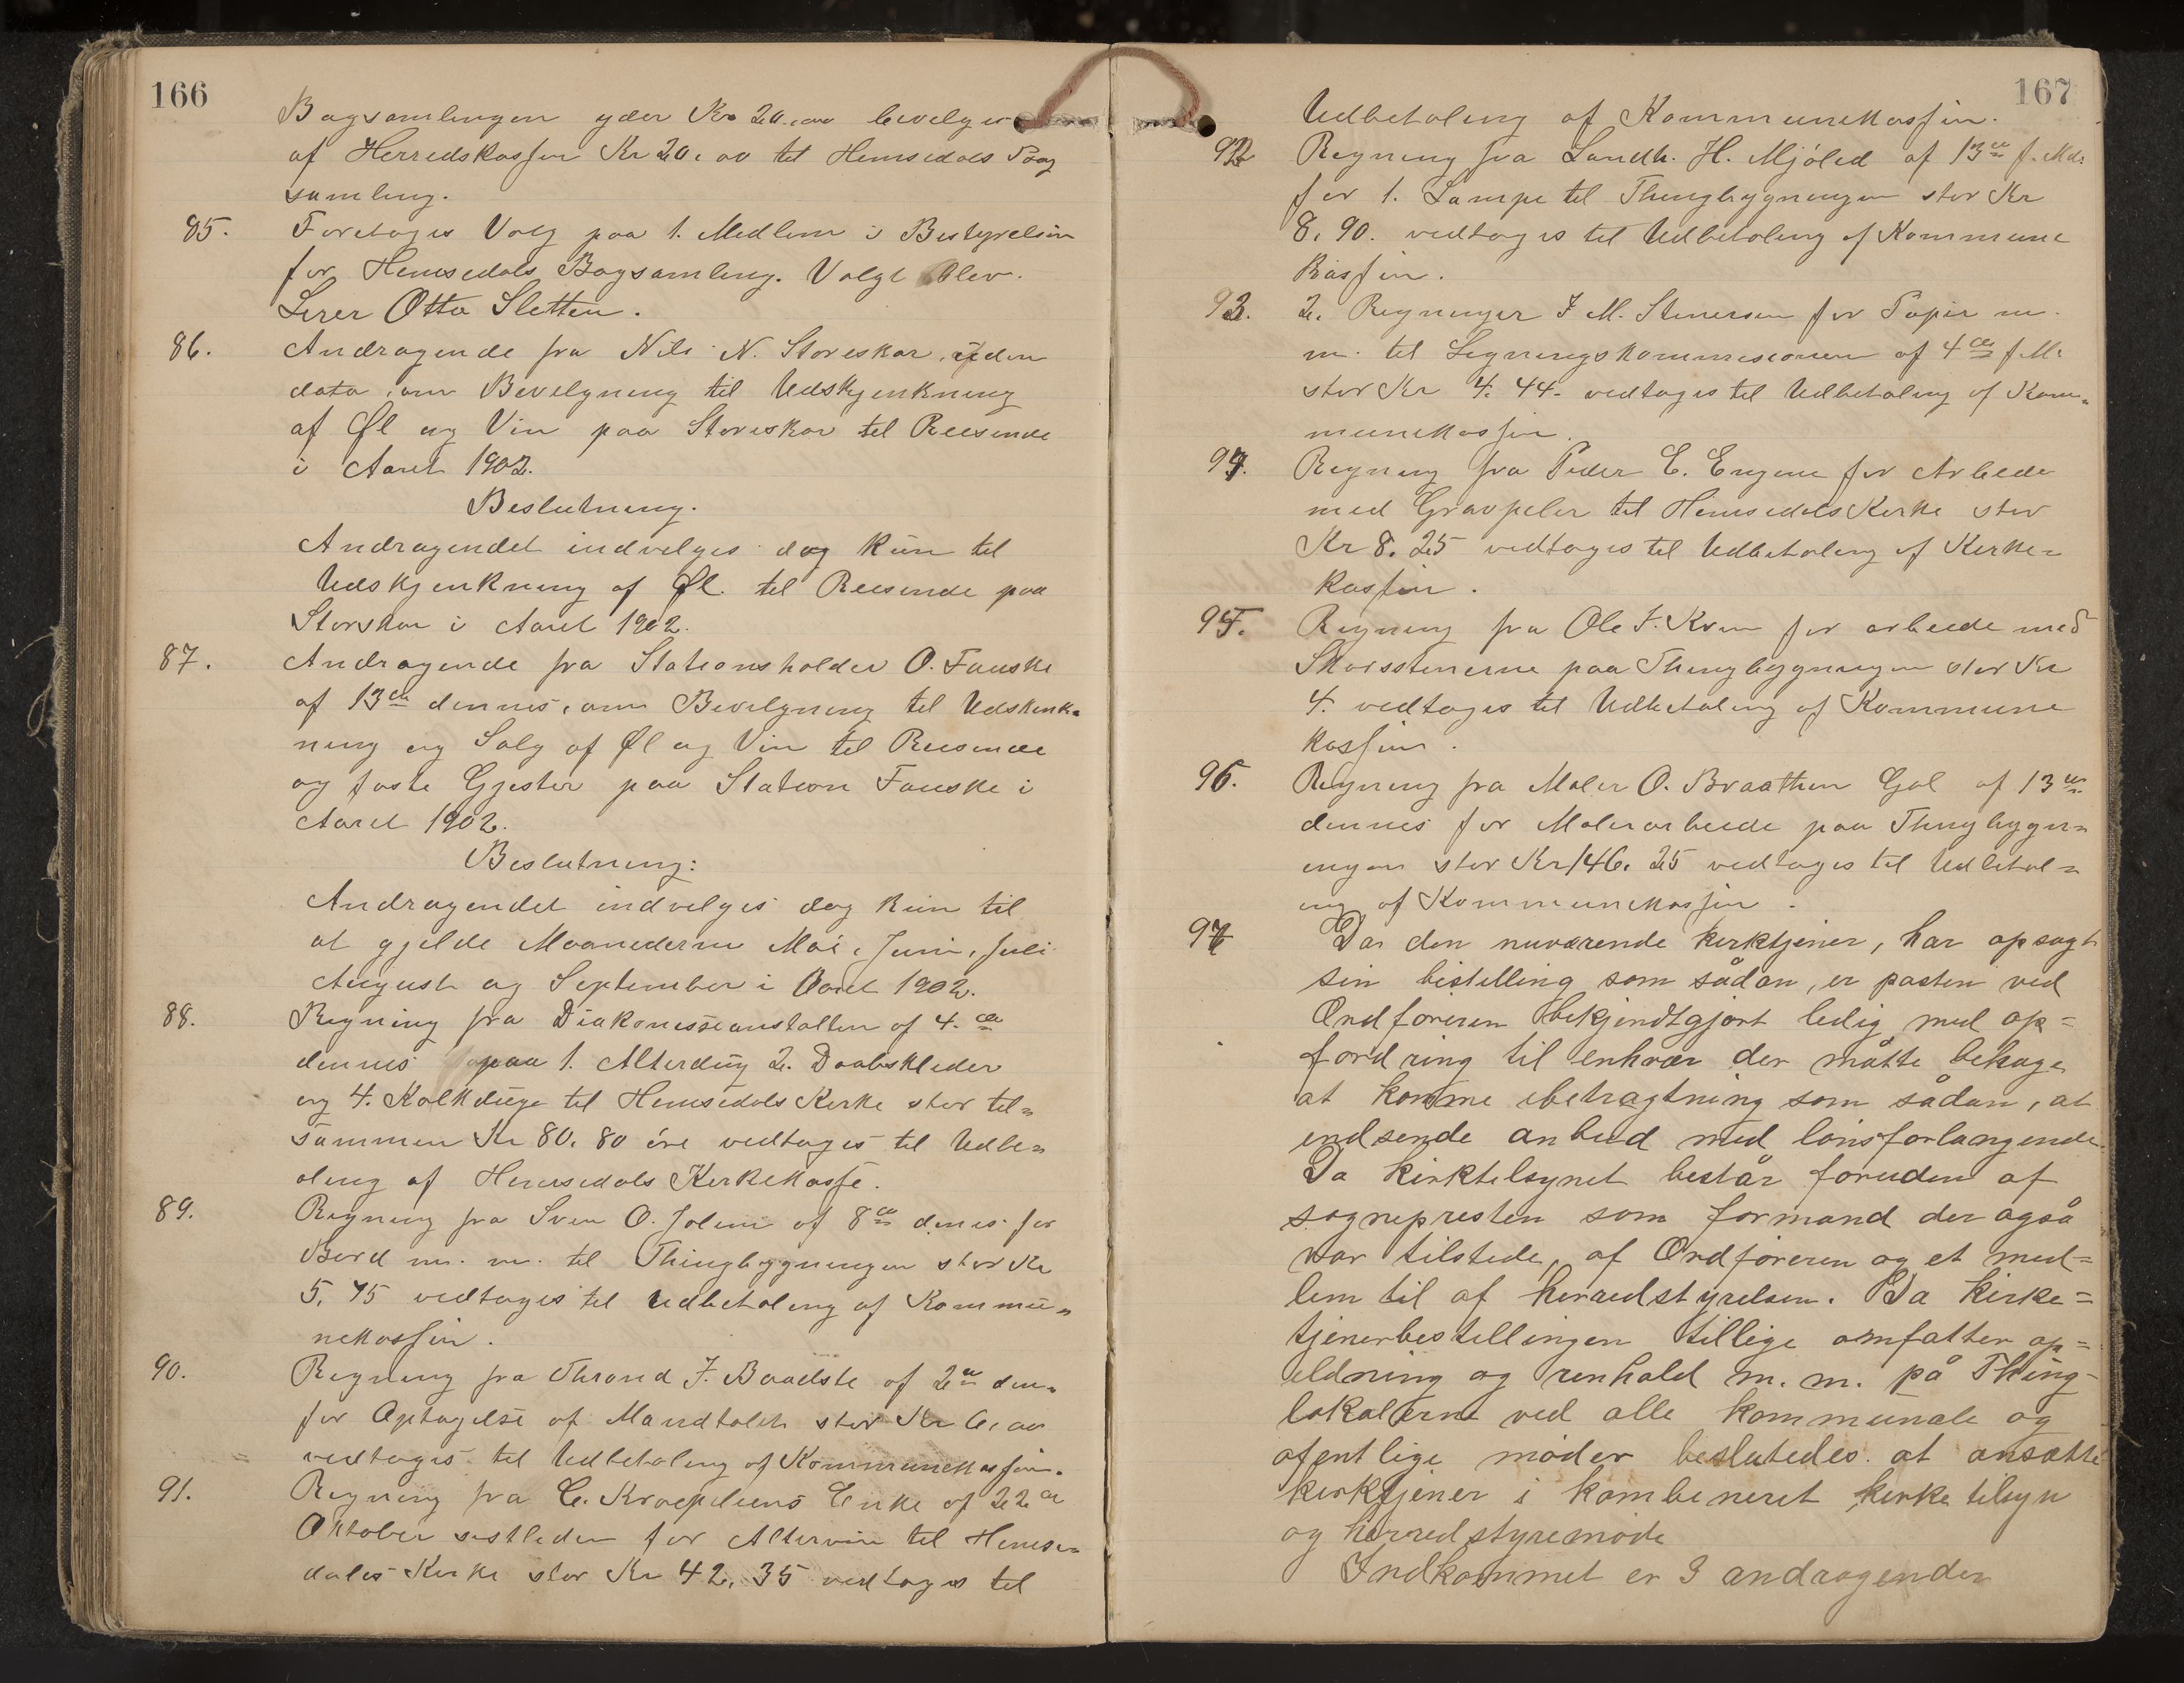 166
Bogsamlingen yder Kr 20.00 bevelges
af Herredskassen Kr 20.00 til Hemsedals Bog
samling.
85. Foretoges Valg paa 1. Medlem i Bestyrelsen
for Hemsedals Bogsamling. Valgt blev.
Lerer Otto Sletten.
86. Andragende fra Nils N. Storeskar, uden
data, om Bevelgning til Udskjenkning
af Øl og Vin paa Storeskar til Reisende
i Aaret 1902.
Beslutning.
Andragendet indvelges dog kun til
Udskjenkning af Øl. til Reisende paa
Storskar i Aaret 1902.
87. Andragende fra Stationsholder O. Fauske
af 13de dennes, om Bevelgning til Udskenk=
ning og Salg af Øl og Vin til Reisende
og faste Gjester paa Station Fauske i
Aaret 1902.
Beslutning:
Andragendet indvelges dog kun til
at gjelde Maanederne Mai, Juni, Juli
August og September i Aaret 1902.
88. Regning fra Diakonisseanstalten af 4.de
dennes paa 1. Alterdug 2. Daabskleder
og 4. Kalkduge til Hemsedals Kirke stor til=
sammen Kr 80.80 øre vedtoges til Udbe=
oling af Hemsedals Kirkekasse.
89. Regning fra Sven O. Jolem af 8de denes for
Bord m. m. til Thingbygningen stor Kr
5,75 vedtoges til Udbetaling af Kommu=
nekassen.
90. Regning fra Thrond J. Baadste af 2de den=
for Optagelse af Mandtallet stor Kr 6,00
vedtoges til Udbetaling af Kommunekassen.
91. Regning fra C. Kraepeliens Enke af 22de
Oktober sistleden for Altervin til Hemse=
dales Kirke stor Kr 42,35 vedtoges til
167
Udbetaling af Kommunekassen.
92. Regning fra Landh. H. Mjøled af 13de f. Md.
for 1. Lampe til Thingbygningen stor Kr
8,90. vedtoges til Udbetaling af Kommune
Kassen.
93. 2. Regninger J M. Stenersen for Papir m.
m. til Ligningskommisionen af 4de f M.
stor Kr 4.44. vedtoges til Udbetaling af Kom=
munekassen.
94. Regning fra Peder E. Engene for Arbeide
med Gravpeler til Hemsedals Kirke stor
Kr 8.25 vedtoges til Udbetaling af Kirke=
kassen.
95. Regning fra Ole J. Kven for arbeide med
Skorsstenerne paa Thingbygningen stor Kr
4. vedtoges til Udbetaling af Kommune
kassen.
96. Regning fra Maler O. Braathen Gol af 13de
dennes for Malerarbeide paa Thingbygn=
ingen stor Kr 146.25 vedtoges til Udbetal=
ing af Kommunekassen.
97 Da den nuværende kirketjener, har opsagt
sin bistelling som sådan, er posten ved
Ordføreren bekjendtgjort ledig med op=
fordring til enhver der måtte behage
at komme ibetragtning som sådan, at
indsende anbud med lønsforlangende.
Da kirketilsynet består foruden af
sognepresten som formand der også
var tilstede, af Ordføreren og et med=
lem til af herredstyrelsen. Da kirke=
tjenerbestillingen tillige omfatter op=
ildning og renhold m. m. på Thing=
lokalerne ved alle kommunale og
ofentlige møder beslutedes at ansætte
kirketjener i kombineret kirketilsyn
og herredstyremøde
Indkommet er 3 andragender